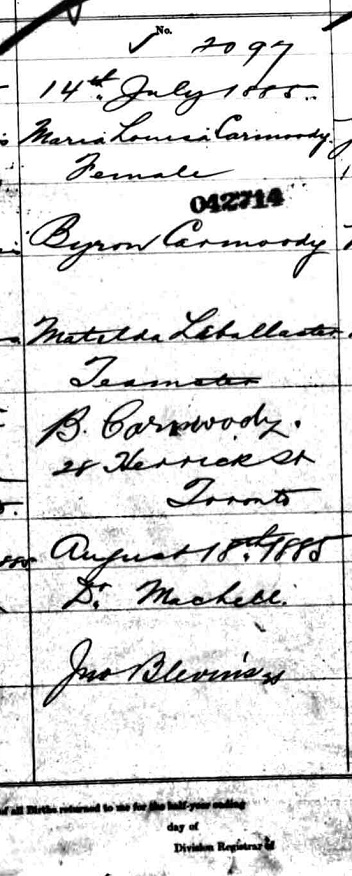 No.
✓ 2097
14th. July 1885.
Maria Louisa Carmoody.
Female
042714
Byron Carmoody
Matilda
Teamster
B. Carmoody.
28 Herrick St
Toronto
August 18th. 1885
Dr. Machell.
Jno Blevins
of all Births returned to me for the half-year ending
day of
Division Registrar of